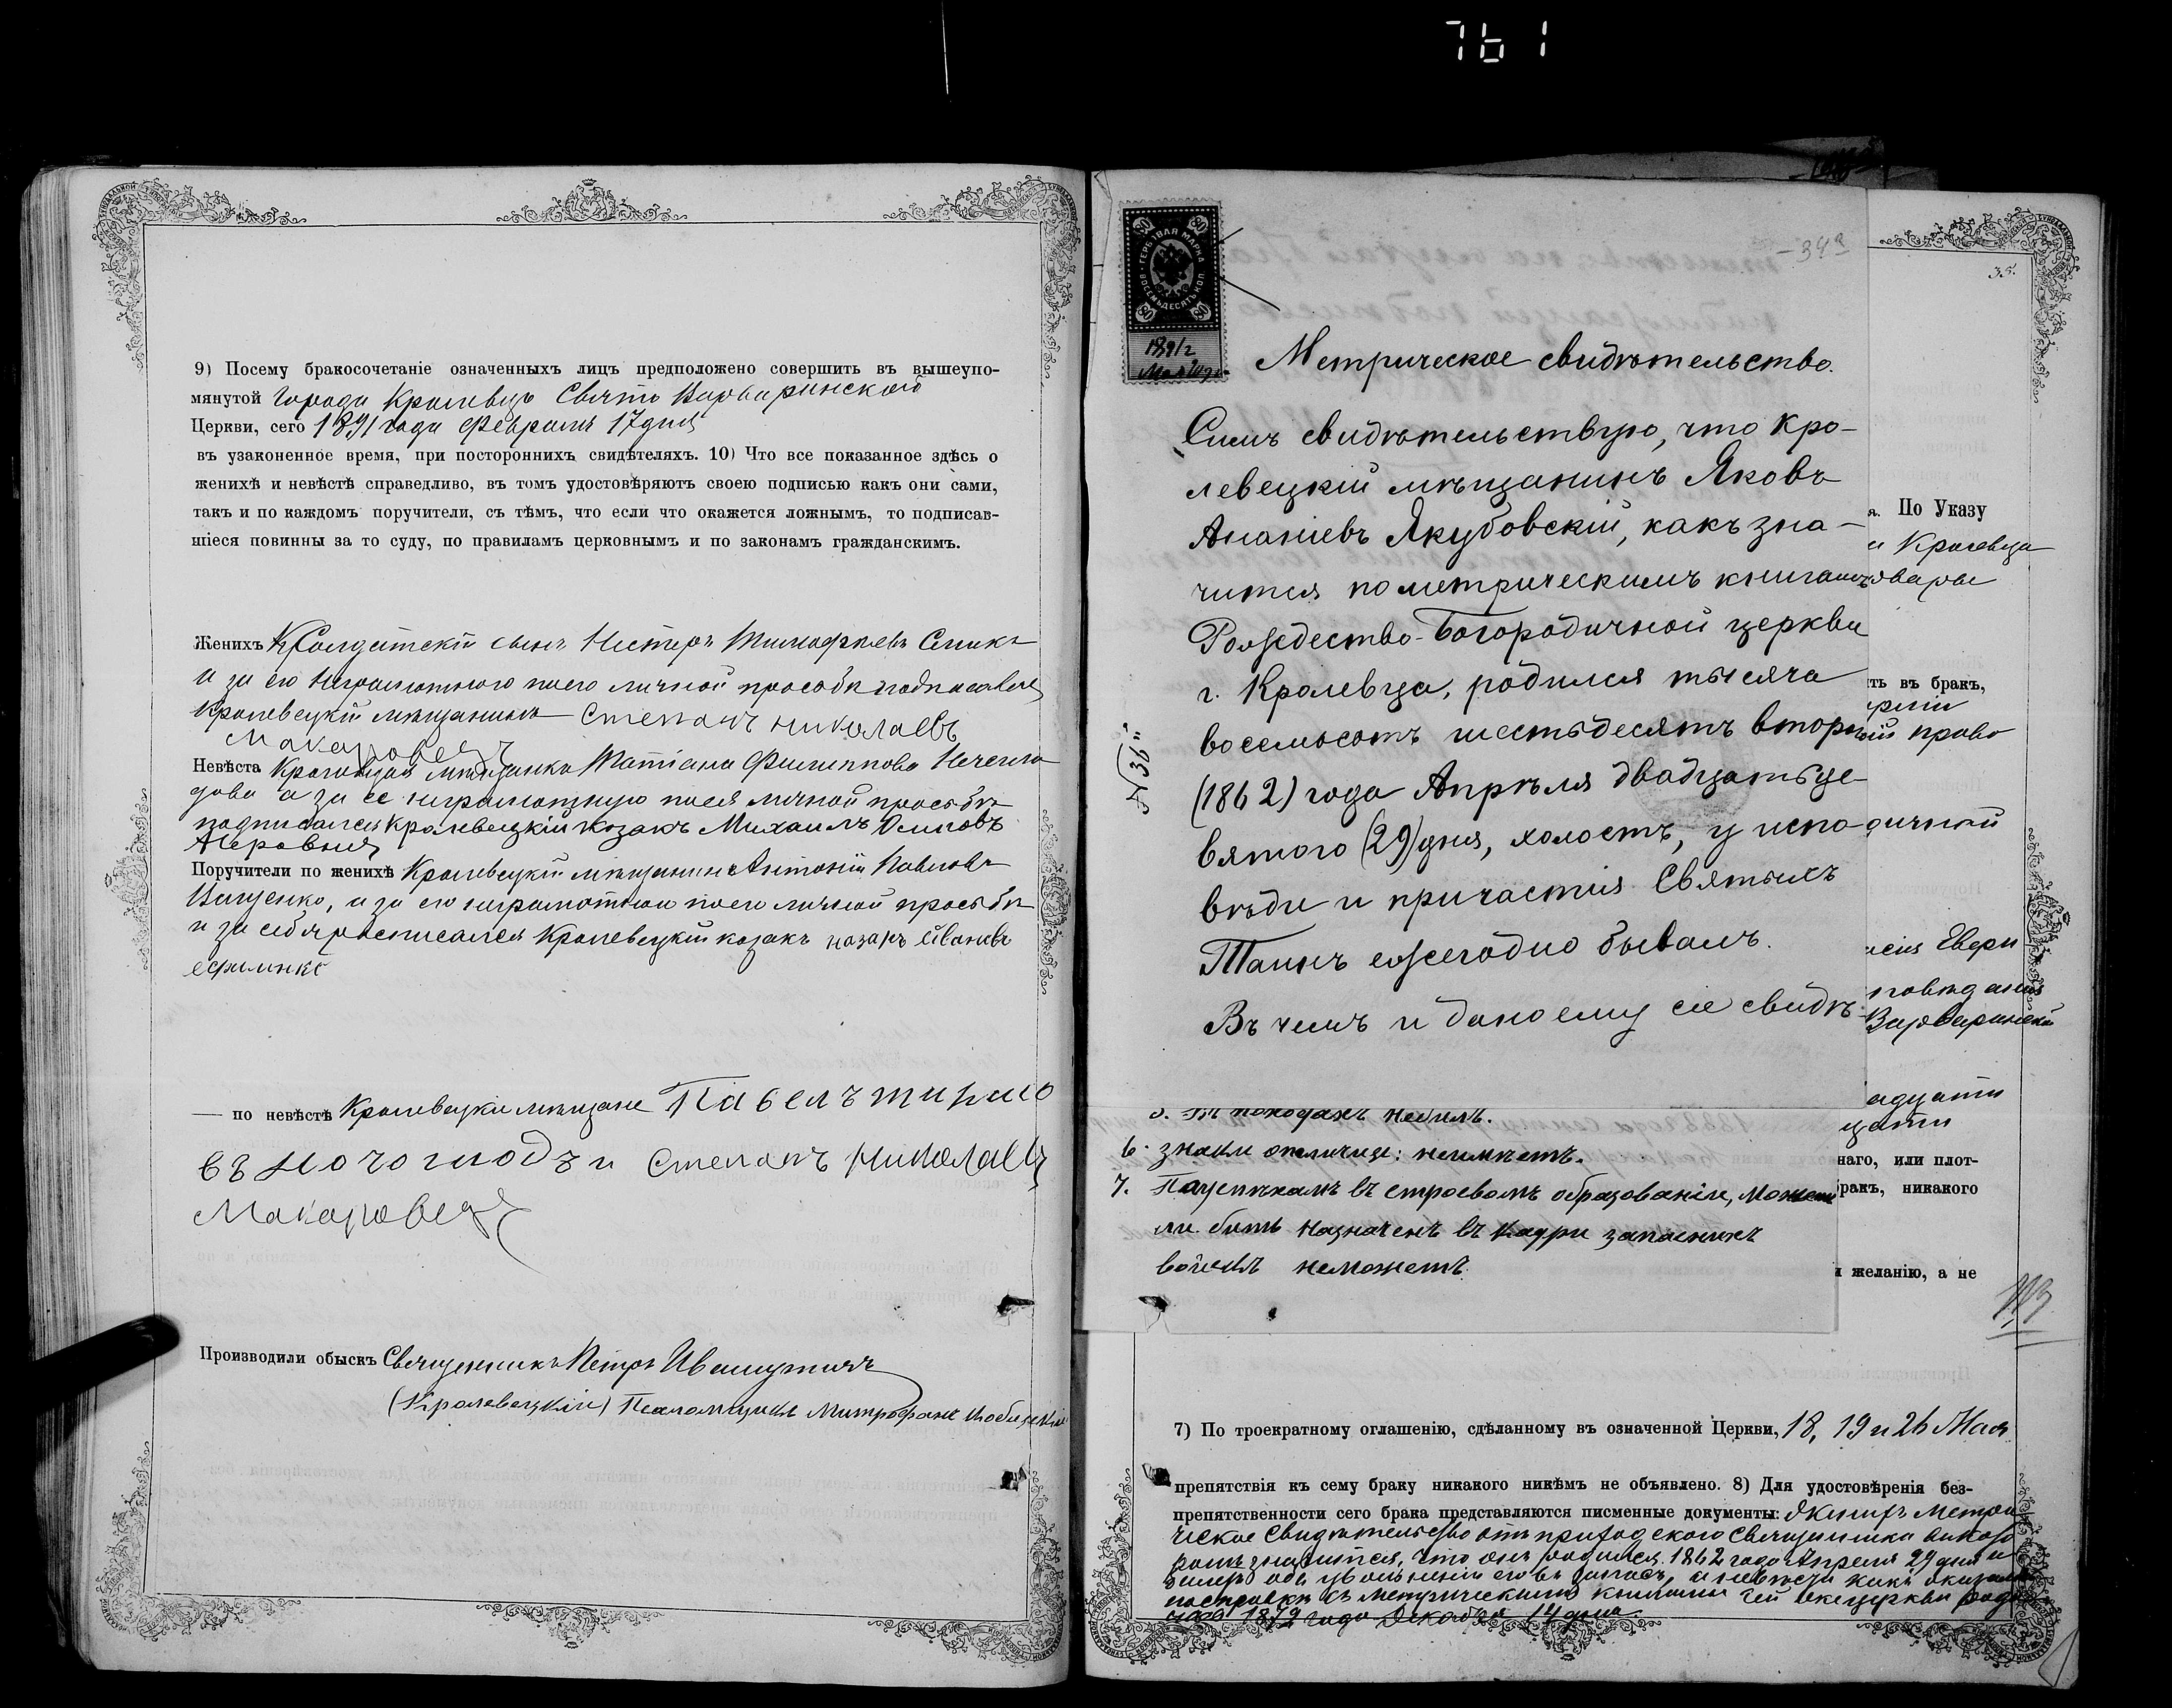 761
9) Посему бракосочетаніе означенныхъ лицъ предположено совершить въ вышеупо-
мянутой города Кролевца Свято Варваринской
Церкви, сего 1891 года Февраля 17 дня
въ узаконенное время, при постороннихъ свидѣтеляхъ. 10) Что все показанное здѣсь о
женихѣ и невѣстѣ справедливо, въ томъ удостовѣряютъ своею подписью какъ они сами,
такъ и по каждомъ поручители, съ тѣмъ, что если что окажется ложнымъ, то подписав-
шіеся повинны за то суду, по правиламъ церковнымъ и по законамъ гражданскимъ.
Женихъ Солдатскій сынъ Несторъ Тимофѣевъ
и за его неграмотного по его личной просьбѣ подписался
Кролевецкій мѣщанинъ Степанъ Николаевъ
Макаровецъ
Невѣста Кролевецкая мѣщанка Татіана Филиппова
а за ее неграмотную по ея личной просьбѣ
подписался Кролевецкій козакъ Михаилъ Осиповъ
Поручители по женихѣ Кролевецкій мѣщанинъ Антоній Павловъ
Ищенко, а за его неграмотного по его личной просьбѣ
и за себя росписался Кролевецкій козакъ назаръ Ивановъ
— по невѣстѣ Кролевецкіе мѣщане Павелъ
и Степанъ Николаевъ
Макаровецъ
Производили обыскъ Священникъ Петръ
(Кролевецкій) Псаломщикъ Митрофанъ
80 80
ГЕРБОВАЯ МАРКА
ВОСЕМЬДЕСЯТЪ КОП.
80 80
1891 г
Мая
- 34а
35.
Метрическое свидѣтельство.
Симъ свидѣтельствую, что Кро-
левецкій мѣщанинъ Яковъ
Ананіевъ Якубовскій, какъ зна-
чится по метрическимъ книгамъ
Рождество-Богородичной церкви
г. Кролевца, родился тысяча
восемьсотъ шестьдесятъ второго
(1862) года Апрѣля двадцать де-
вятого (29) дня, холостъ, у испо-
вѣди и причастія Святыхъ
Таинъ ежегодно бывалъ.
Въ чемъ и дано ему сіе свидѣ-
№ 36
я. По Указу
Кролевца
ть въ бракъ,
право
повѣданія
Варваринской
наго, или плот-
бракъ, никакого
и желанію, а не
5. Въ походахъ небылъ.
6. знаки отличія: неимѣетъ.
7. По успѣхамъ въ строевомъ образованіи, можетъ
ли быть назначенъ въ кадры запасныхъ
войскъ неможетъ.
7) По троекратному оглашенію, сдѣланному въ означенной Церкви, 18, 19 и 26 Мая
препятствія къ сему браку никакого никѣмъ не объявлено. 8) Для удостовѣренія без-
препятственности сего брака представляются писменные документы: Женихъ Метри
ческое Свидѣтельство отъ приходского Священника
значится, что онъ родился 1862 года Апрѣля 29 дня и
билетъ объ увольненіи его въ запасъ, а невѣста какъ оказалось
по справкѣ съ метрическими книгами сей же церкви роди
лась 1872 года Декабря 14 дня.